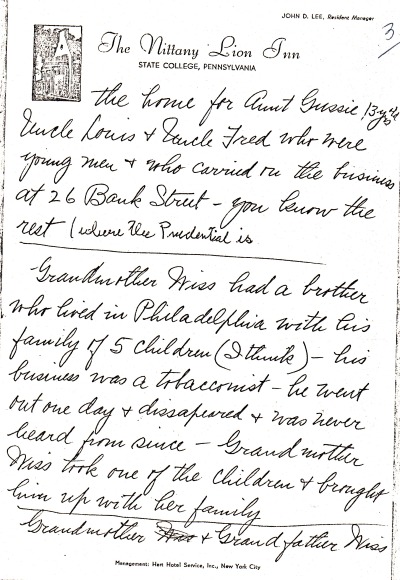 JOHN D. LEE, Resident Manager
3
The Nittany Lion Inn
STATE COLLEGE, PENNSYLVANIA
the home for Aunt Gussie 13 yrs old
Uncle Louis & Uncle Fred who were
young men & who carried on the business
at 26 Bank Street - you know the
rest (where the Prudential is
Grandmother Wiss had a brother
who lived in Philadelphia with his
family of 5 children (I think) - his
business was a tobacconist - he went
out one day & dissapeared & was never
heard from since - Grandmother
Wiss took one of the children & brought
him up with her family
Grandmother Wiss & Grandfather Wiss
Management: Hert Hotel Service, Inc., New York City